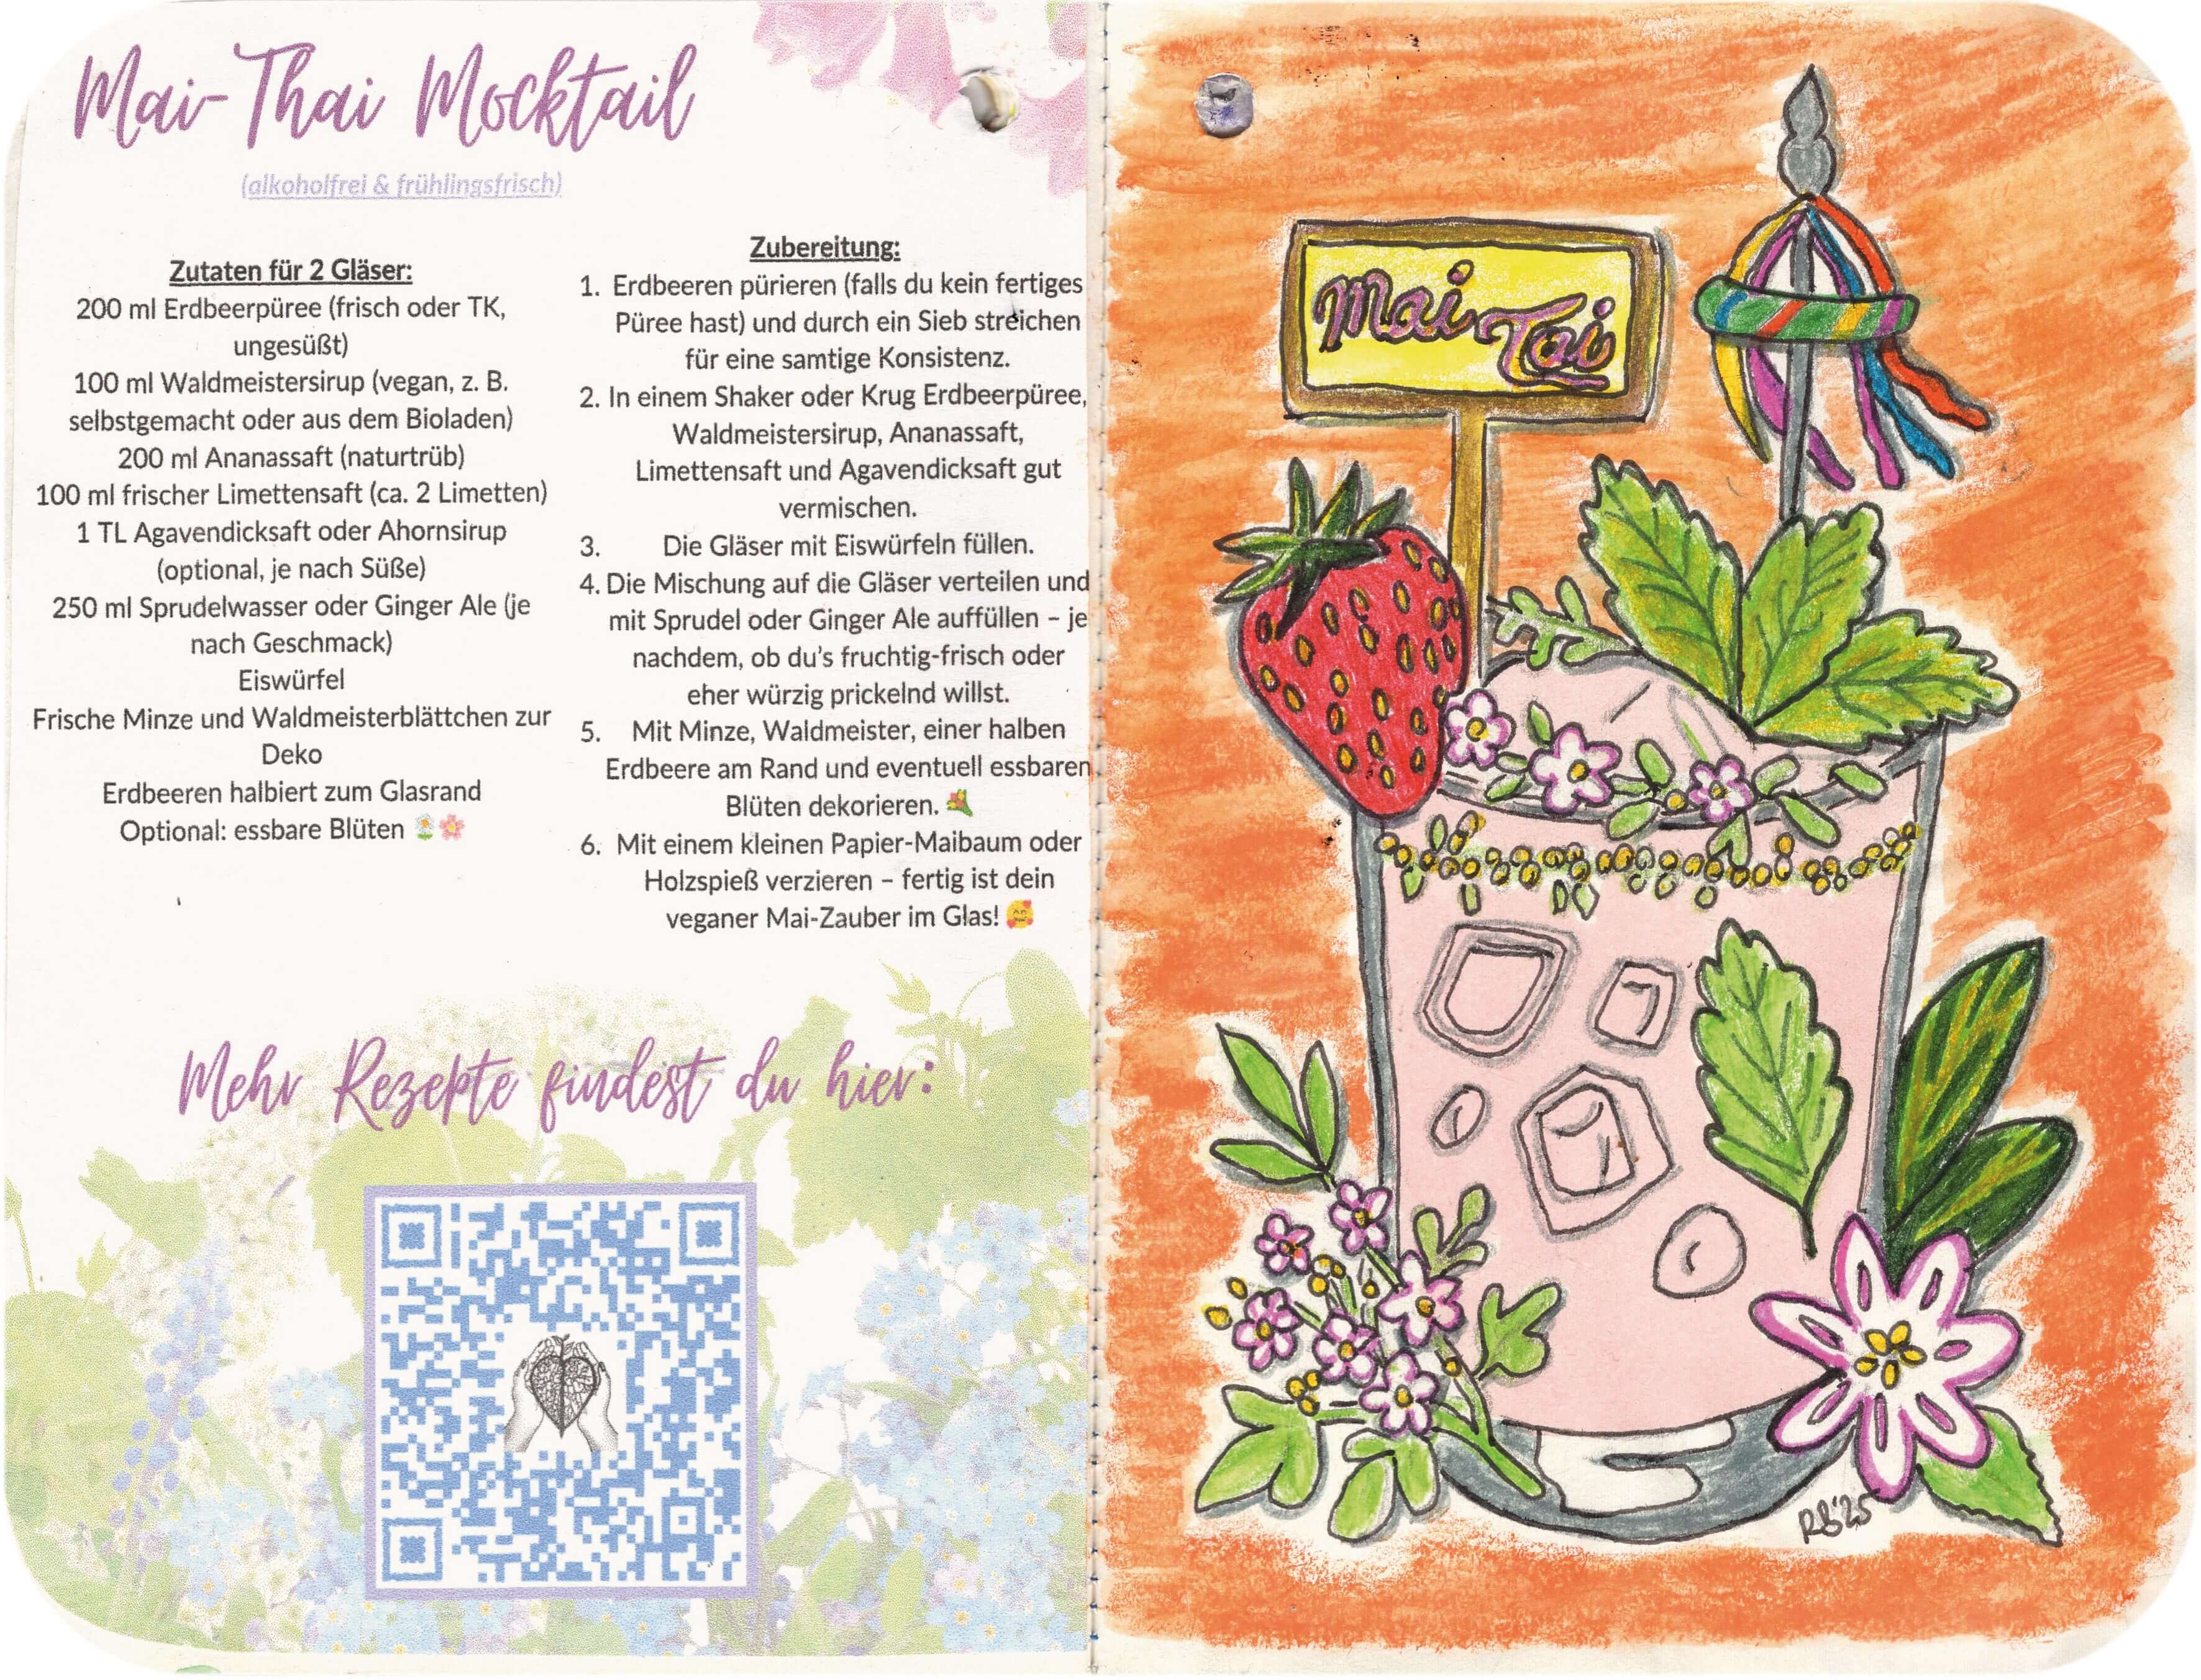 Mai-Thai Mocktail
(alkoholfrei & frühlingsfrisch)
Zutaten für 2 Gläser:
200 ml Erdbeerpüree (frisch oder TK,
ungesüßt)
100 ml Waldmeistersirup (vegan, z. B.
selbstgemacht oder aus dem Bioladen)
200 ml Ananassaft (naturtrüb)
100 ml frischer Limettensaft (ca. 2 Limetten)
1 TL Agavendicksaft oder Ahornsirup
(optional, je nach Süße)
250 ml Sprudelwasser oder Ginger Ale (je
nach Geschmack)
Eiswürfel
Frische Minze und Waldmeisterblättchen zur
Deko
Erdbeeren halbiert zum Glasrand
Optional: essbare Blüten 🌼🌸
Zubereitung:
1. Erdbeeren pürieren (falls du kein fertiges
Püree hast) und durch ein Sieb streichen
für eine samtige Konsistenz.
2. In einem Shaker oder Krug Erdbeerpüree,
Waldmeistersirup, Ananassaft,
Limettensaft und Agavendicksaft gut
vermischen.
3. Die Gläser mit Eiswürfeln füllen.
4. Die Mischung auf die Gläser verteilen und
mit Sprudel oder Ginger Ale auffüllen – je
nachdem, ob du's fruchtig-frisch oder
eher würzig prickelnd willst.
5. Mit Minze, Waldmeister, einer halben
Erdbeere am Rand und eventuell essbaren
Blüten dekorieren. 💐
6. Mit einem kleinen Papier-Maibaum oder
Holzspieß verzieren – fertig ist dein
veganer Mai-Zauber im Glas! 🥰
Mehr Rezepte findest du hier:
Mai Tai
RB'25